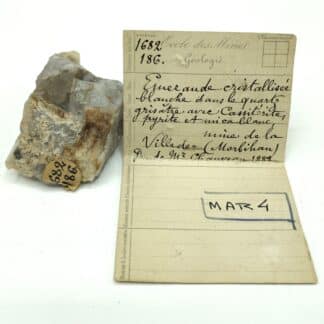 1682
186.
École des Mines
Géologie
cristallisée
blanche dans le quartz
grisâtre avec Cassitérite,
pyrite et mica blanc,
mine de la
Villeder (Morbihan)
MAR 4
1682
186.